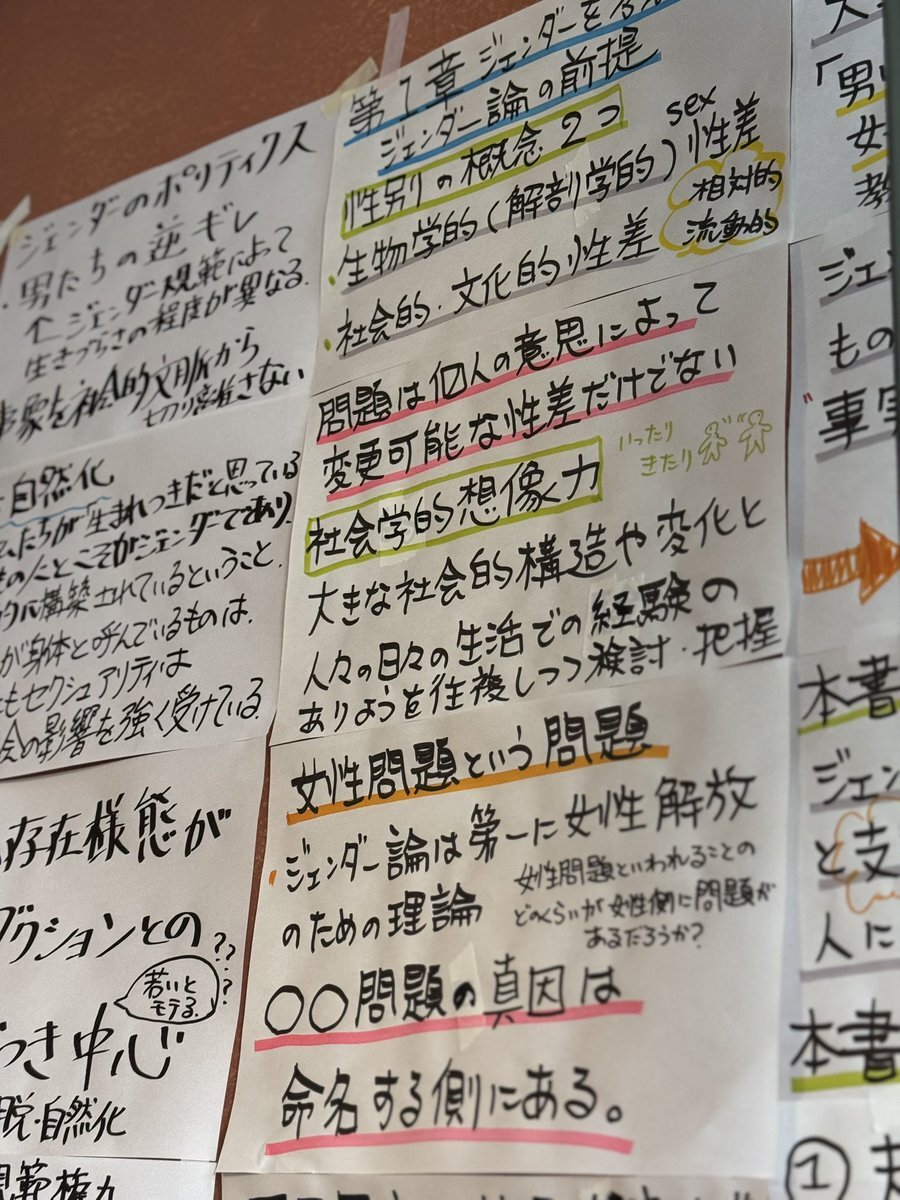 ジェンダのポリティクス
・男たちの逆ギレ
↑ジェンダー規範によって
生きづらさの程度が異なる.
事象を社会的文脈から
切り離さない
自然化
たちが「生まれつきだと思っている
ものことこそがジェンダーであり、
構築されているということ.
が身体と呼んでいるものは、
もセクシュアリティは
会の影響を強く受けている.
存在様態が
クションとの??
若いと
モテる.
つき中心
脱・自然化
規範権力
第1章 ジェンダーを
ジェンダー論の前提
性別の概念 2つ
sex
・生物学的(解剖学的)性差
相対的
流動的
・社会的・文化的性差
問題は個人の意思によって
変更可能な性差だけでない
社会学的想像力
いったり
きたり
大きな社会的構造や変化と
人々の日々の生活での経験の
ありようを往複しつつ検討・把握
女性問題という問題
・ジェンダー論は第一に女性解放
のための理論
女性問題といわれることの
どのくらいが女性側に問題が
あるだろうか?
○○問題の真因は
命名する側にある。
「男
女
教
ジェ
もの
事実
本書
ジェン
と支
人に
本書
①